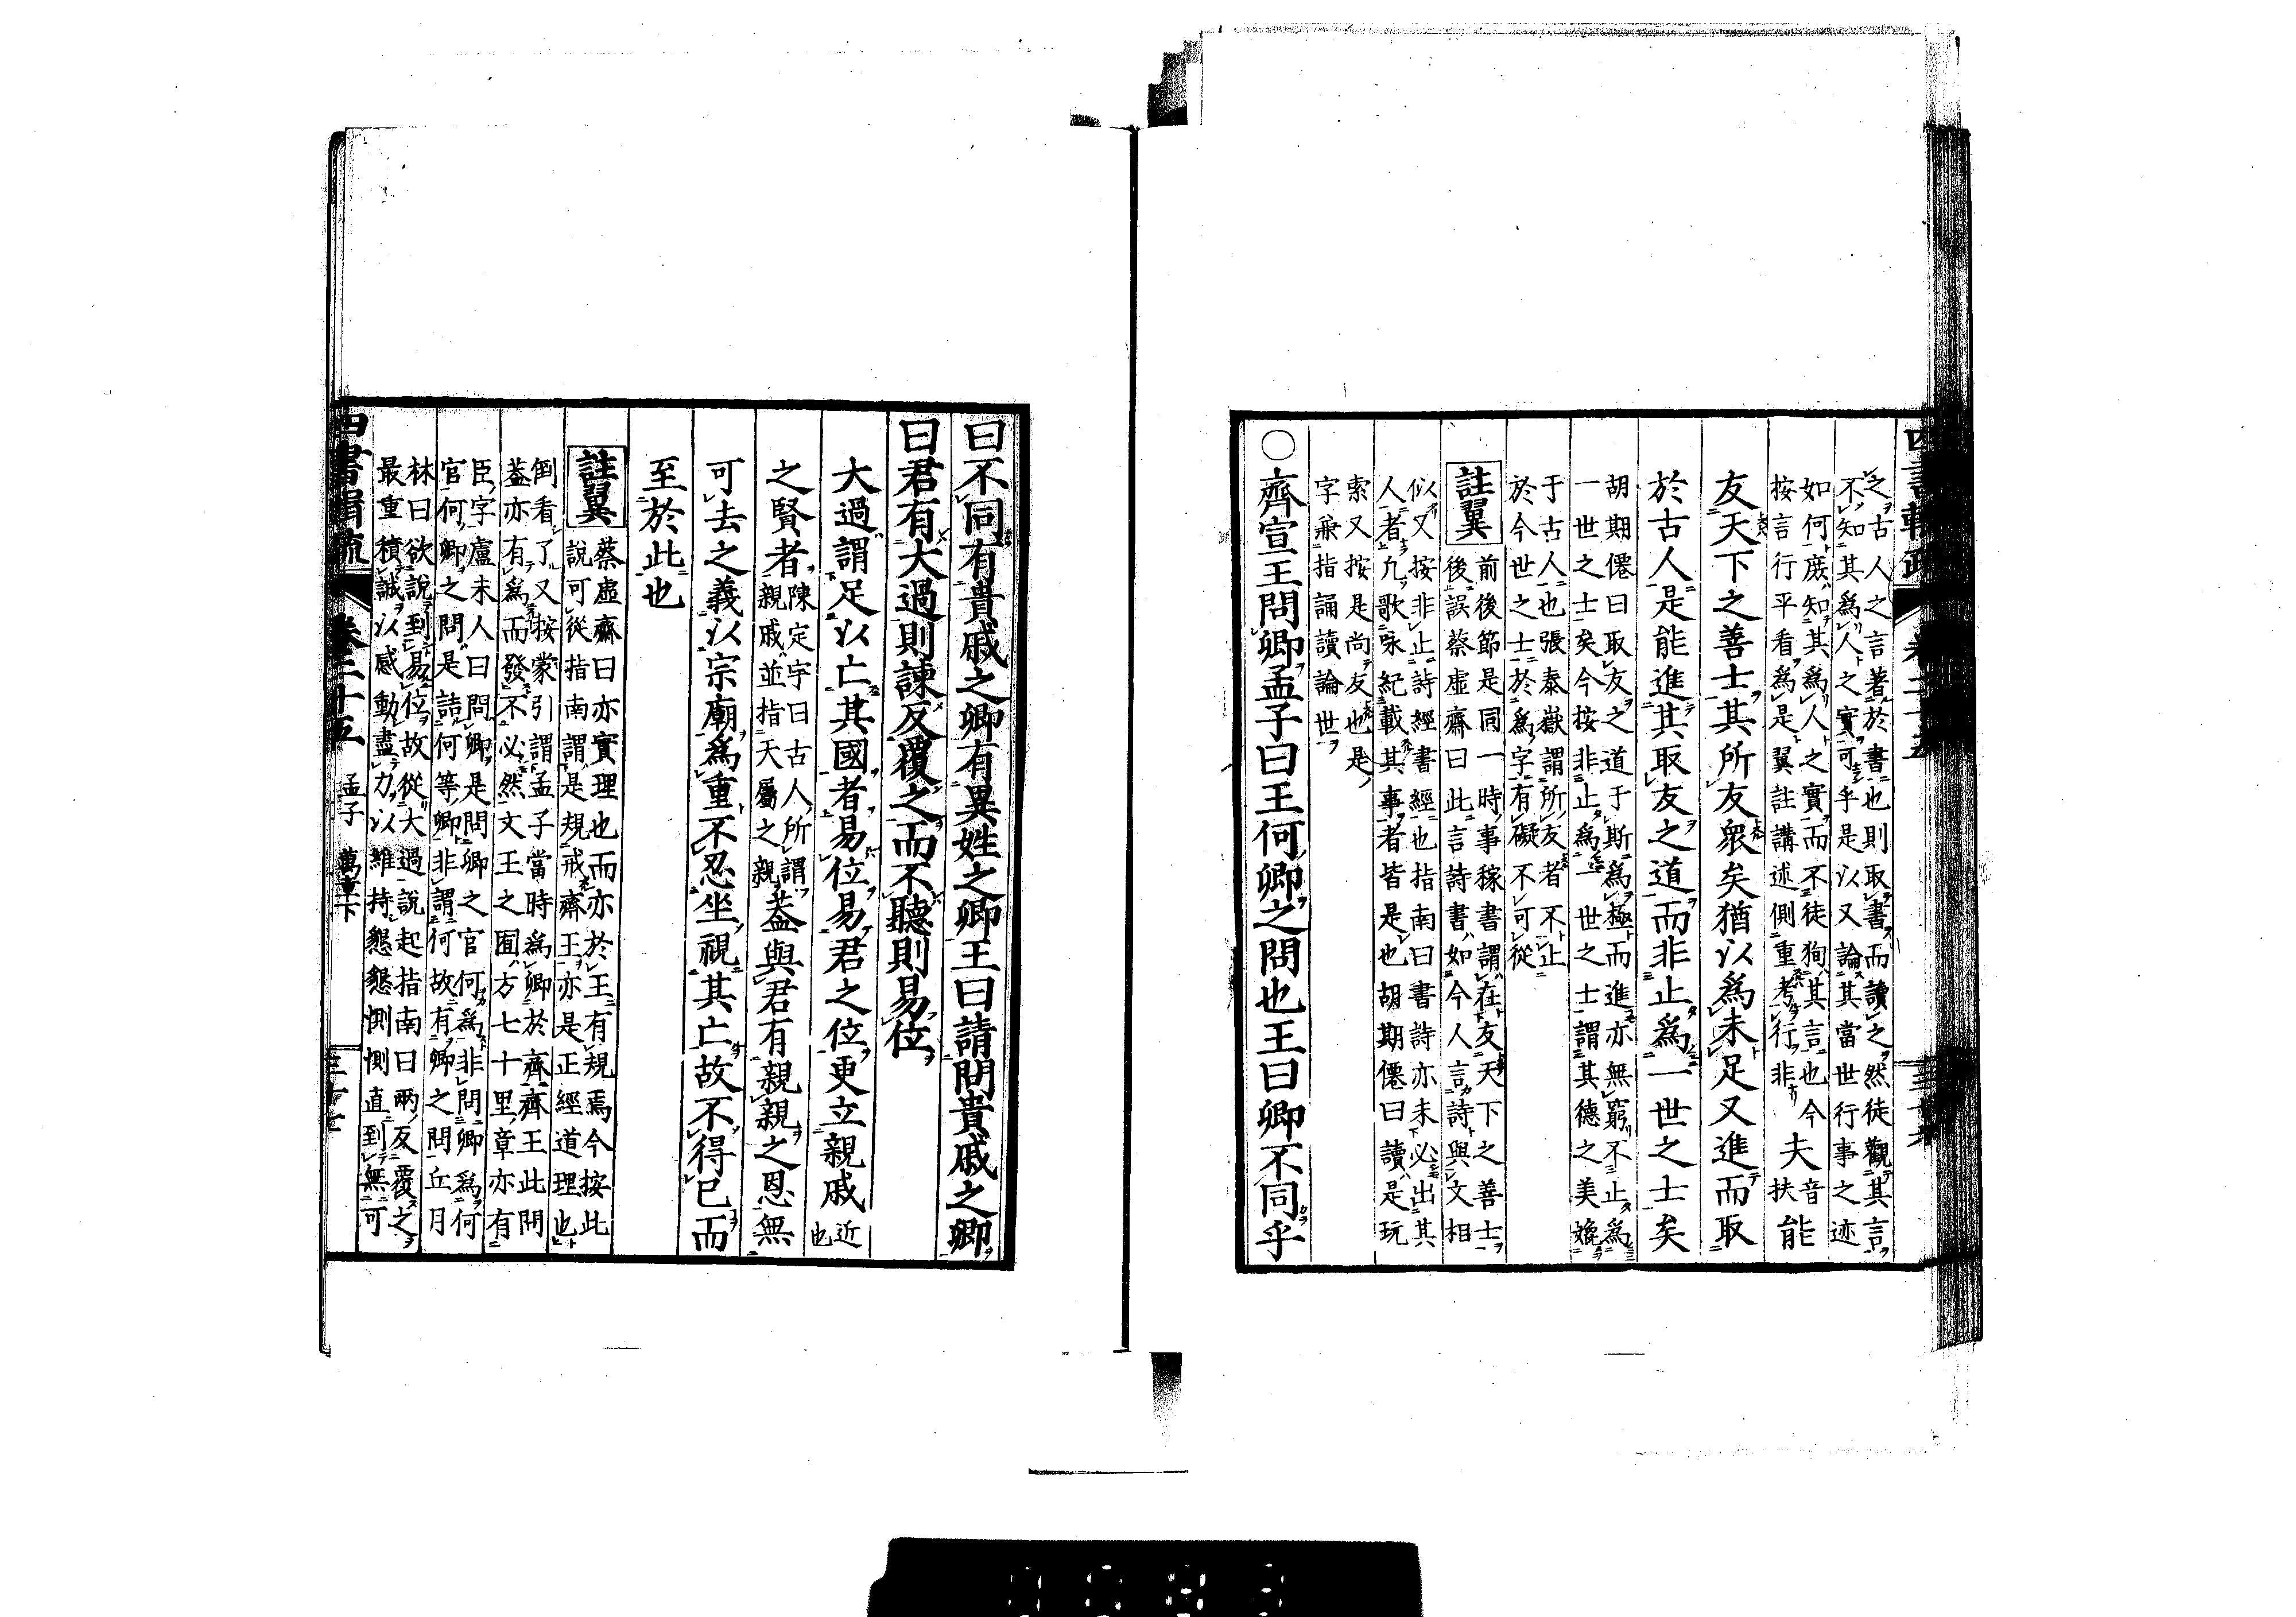 之古人之言著於書也則取書而讀之然徒觀其言
不知其爲人之實可乎是以又論其當世行事之迹
如何庶知其爲人之實而不徒狥其言也今
按言行平看爲是翼註講述側重考行非
夫音扶
能
友天下之善士其所友衆矣猶以爲未足又進而取
於古人是能進其取友之道而非止爲一世之士矣
胡期僊曰取友之道于斯爲極而進亦無窮不止爲
一世之士矣今按非止爲一世之士謂其德之美媲
于古人也張泰嶽謂所友者不止
於今世之士於爲字有礙不可從
註翼
前後節是同一時事稼書謂在友天下之善士
後誤蔡虛齋曰此言詩書如今人言詩與文相
似又按非止詩經書經也指南曰書詩亦未必出其
人者凢歌咏紀載其事者皆是也胡期僊曰讀是玩
索又按是尚友也是
字兼指誦讀論世
○齊宣王問卿孟子曰王何卿之問也王曰卿不同乎
四書輯疏 卷二十五
曰不同有貴戚之卿有異姓之卿王曰請問貴戚之卿
曰君有大過則諫反覆之而不聽則易位
大過謂足以亡其國者易位易君之位更立親戚
近也
之賢者
陳定宇曰古人所謂
親戚並指天屬之親
葢與君有親親之恩無
可去之義以宗廟爲重不忍坐視其亡故不得已而
至於此也
註翼
蔡虛齋曰亦實理也而亦於王有規焉今按此
說可從指南謂是規戒齊王亦是正經道理也
倒看了又按蒙引謂孟子當時爲卿於齊齊王此問
葢亦有爲而發不必然文王之囿方七十里章亦有
臣字盧未人曰問卿是問卿之官何爲非問卿爲何
官何卿之問是詰何等卿非謂何故有卿之問丘月
林曰欲說到易位故從大過說起指南曰兩反覆之
最重積誠以感動盡力以維持懇懇惻惻直到無可
四書輯疏 卷二十五 孟子 萬章下 三十七